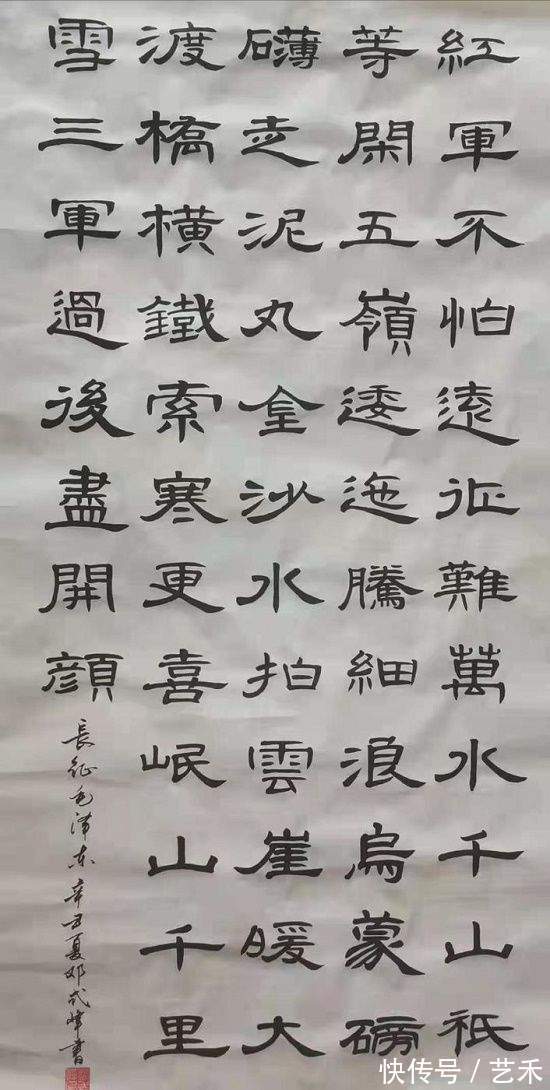 紅軍不怕遠征難萬水千山祇
等閑五嶺逶迤騰細浪烏蒙磅
礴走泥丸金沙水拍雲崖暖大
渡橋橫鐵索寒更喜岷山千里
雪三軍過後盡開顏
長征毛泽东 辛丑夏邓峰書
快传号 / 艺禾